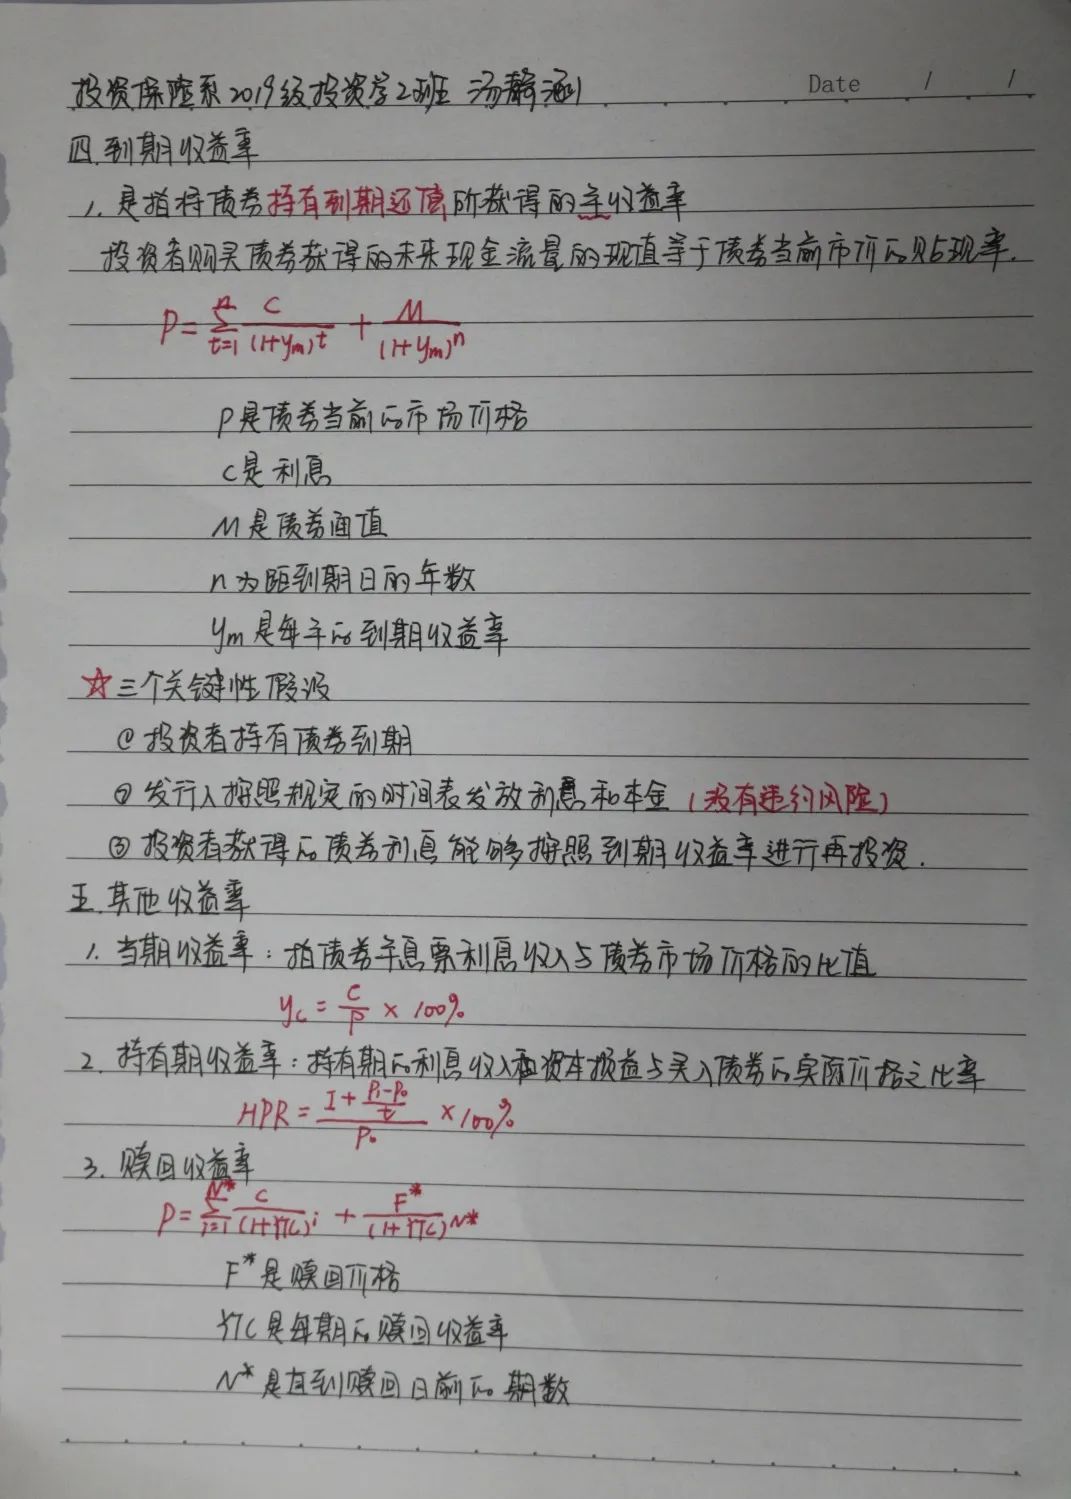 投资保险系2019级投资学2班 汤馥涵 Date / /
四.到期收益率
1. 是指将债券持有到期还债所获得的年收益率
投资者购买债券获得的未来现金流量的现值等于债券当前市价的贴现率.
P=∑_{t=1}^{n} C/(1+ym)^t + M/(1+ym)^n
P是债券当前的市场价格
C是利息
M是债券面值
n为距到期日的年数
ym是每年的到期收益率
☆三个关键性假设
①投资者持有债券到期
②发行人按照规定的时间表发放利息和本金(没有违约风险)
③投资者获得的债券利息能够按照到期收益率进行再投资.
五.其他收益率
1. 当期收益率:指债券年息票利息收入与债券市场价格的比值
yc = C/P × 100%
2. 持有期收益率:持有期的利息收入和资本损益与买入债券的实际价格之比率
HPR = (I + (P1-P0)/t)/P0 ×100%
3. 赎回收益率
P=∑_{i=1}^{N*} C/(1+YTC)^i + F*/(1+YTC)^N*
F*是赎回价格
YTC是每期的赎回收益率
N*是直到赎回日前的期数